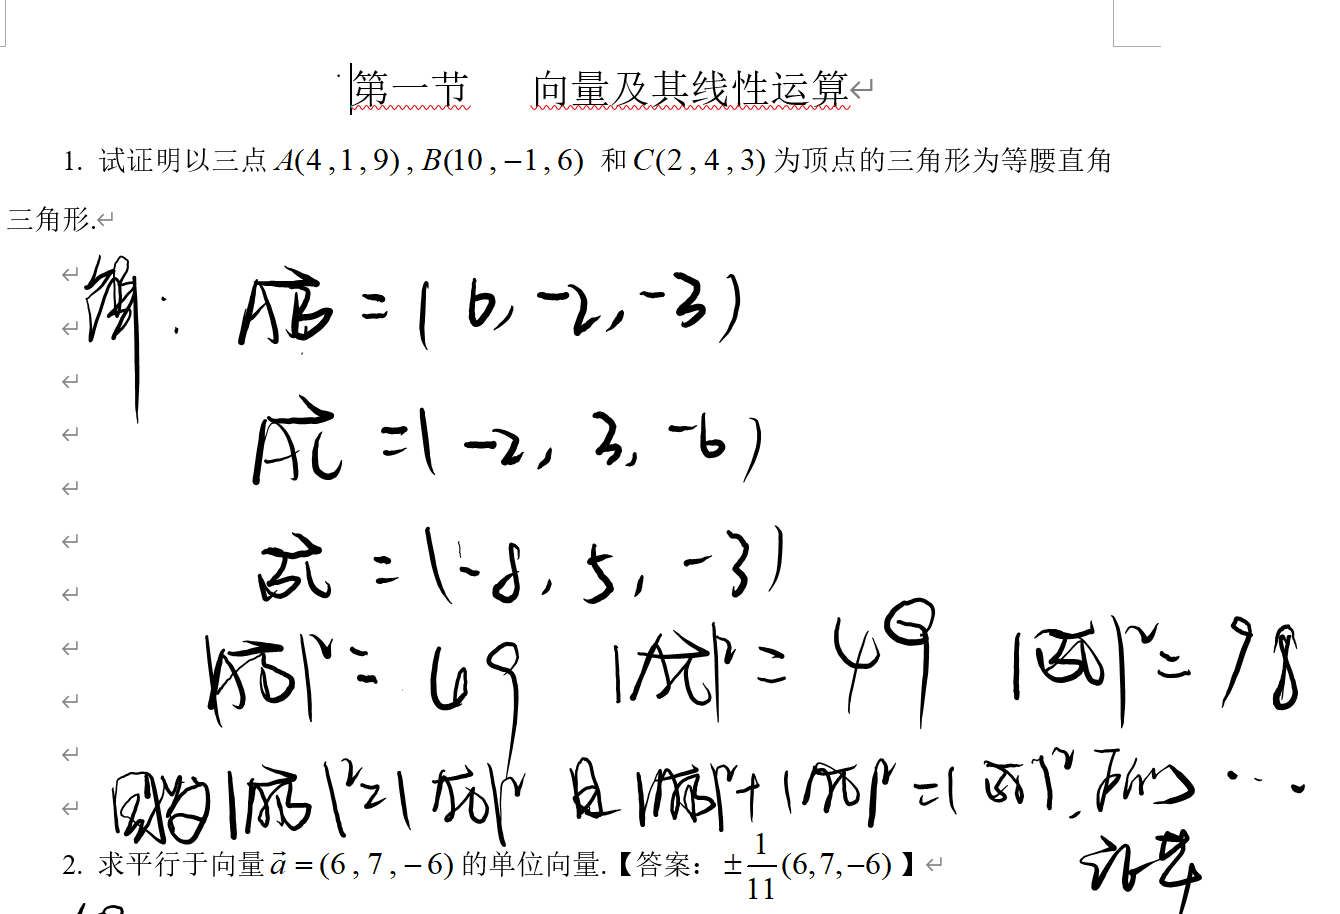 第一节 向量及其线性运算
1. 试证明以三点 A(4,1,9), B(10,−1,6) 和 C(2,4,3) 为顶点的三角形为等腰直角
三角形.
解: AB = (6, -2, -3)
AC = (-2, 3, -6)
BC = (-8, 5, -3)
|AB|² = 49 |AC|² = 49 |BC|² = 98
因为 |AB|² = |AC|² 且 |AB|² + |AC|² = |BC|², 所以 ...
证毕
2. 求平行于向量 a⃗ = (6,7,−6) 的单位向量.【答案: ±1/11(6,7,−6)】